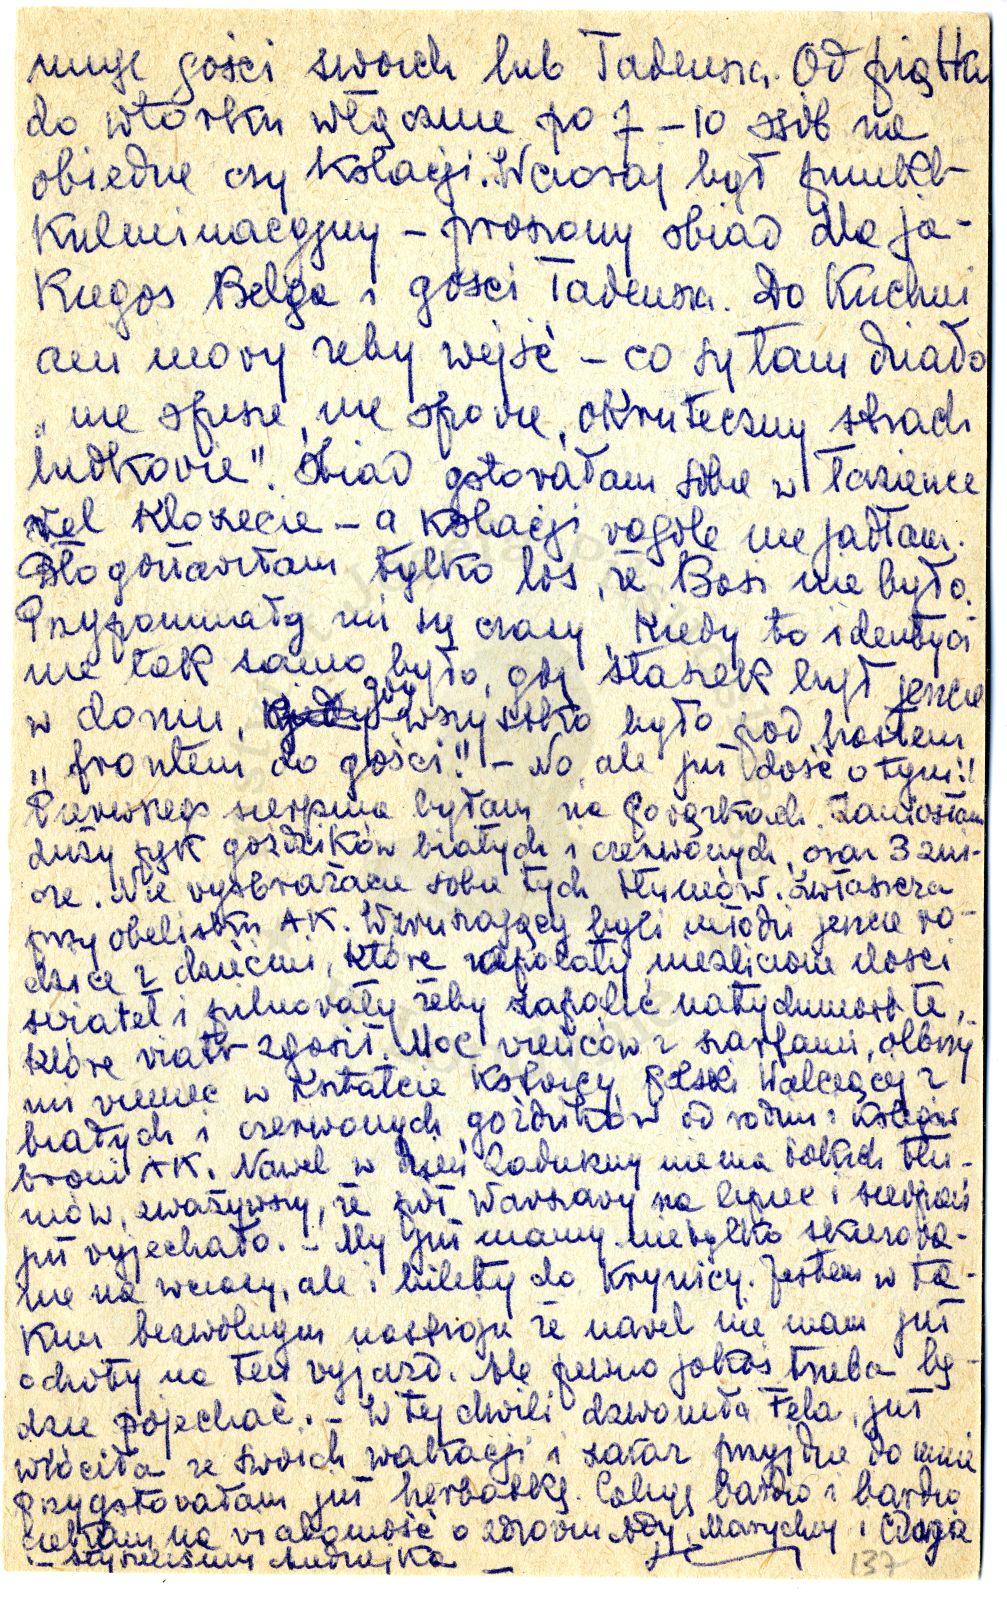 muje gości swoich lub Tadeusza. Od piątku
do wtorku włącznie po 7 – 10 osób na
obiedzie czy kolacji. Wczoraj był punkt
kulminacyjny – proszony obiad dla ja-
kiegoś Belga i gości Tadeusza. Do kuchni
ani mowy żeby wejść – co sy tam działo
„nie spisze, nie spowie, okruteczny strach
ludkowie”. Obiad gotowałam sobie w łazience
vel klozecie – a kolacji wogóle nie jadłam.
Błogosławiłam tylko los, że Basi nie było.
Przypominały mi sy czasy, kiedy to identycz
nie tak samo było, gdy Staszek był jeszcze
w domu, gdy wszystko było pod hasłem
„frontem do gości!” – No, ale już dość o tym!!
Pierwszego sierpnia byłam na Powązkach. Zaniosłam
duży pęk goździków białych i czerwonych, oraz 3 zni-
cze. Nie wyobrażacie sobie tych tłumów. Zwłaszcza
przy obelisku AK. Wzruszający byli młodzi jeszcze ro-
dzice z dziećmi, które zapalały niezliczone ilości
świateł i pilnowały żeby zapalić natychmiast te,
które wiatr zgasił. Moc wieńców z szarfami, olbrzy
mi wieniec w kształcie kotwicy Polski Walczącej z
białych i czerwonych goździków od rodzin i kolegów
broni AK. Nawet w dzień Zaduszny nie ma takich tłu-
mów, zważywszy, że pół Warszawy na lipiec i sierpień
już wyjechało. – My już mamy nietylko skierowa-
nie na wczasy, ale i bilety do Krynicy. Jestem w ta-
kim bezwolnym nastroju że nawet nie mam już
ochoty na ten wyjazd. Ale pewno jakoś trzeba bę-
dzie pojechać. – W tej chwili dzwoniła Fela, już
wróciła ze swoich wakacji i zaraz przyjdzie do mnie
przygotowałam już herbatkę. Całuję bardzo i bardzo
czekam na wiadomość o zdrowiu Ady, Marychny i
– Andrzejka –
137